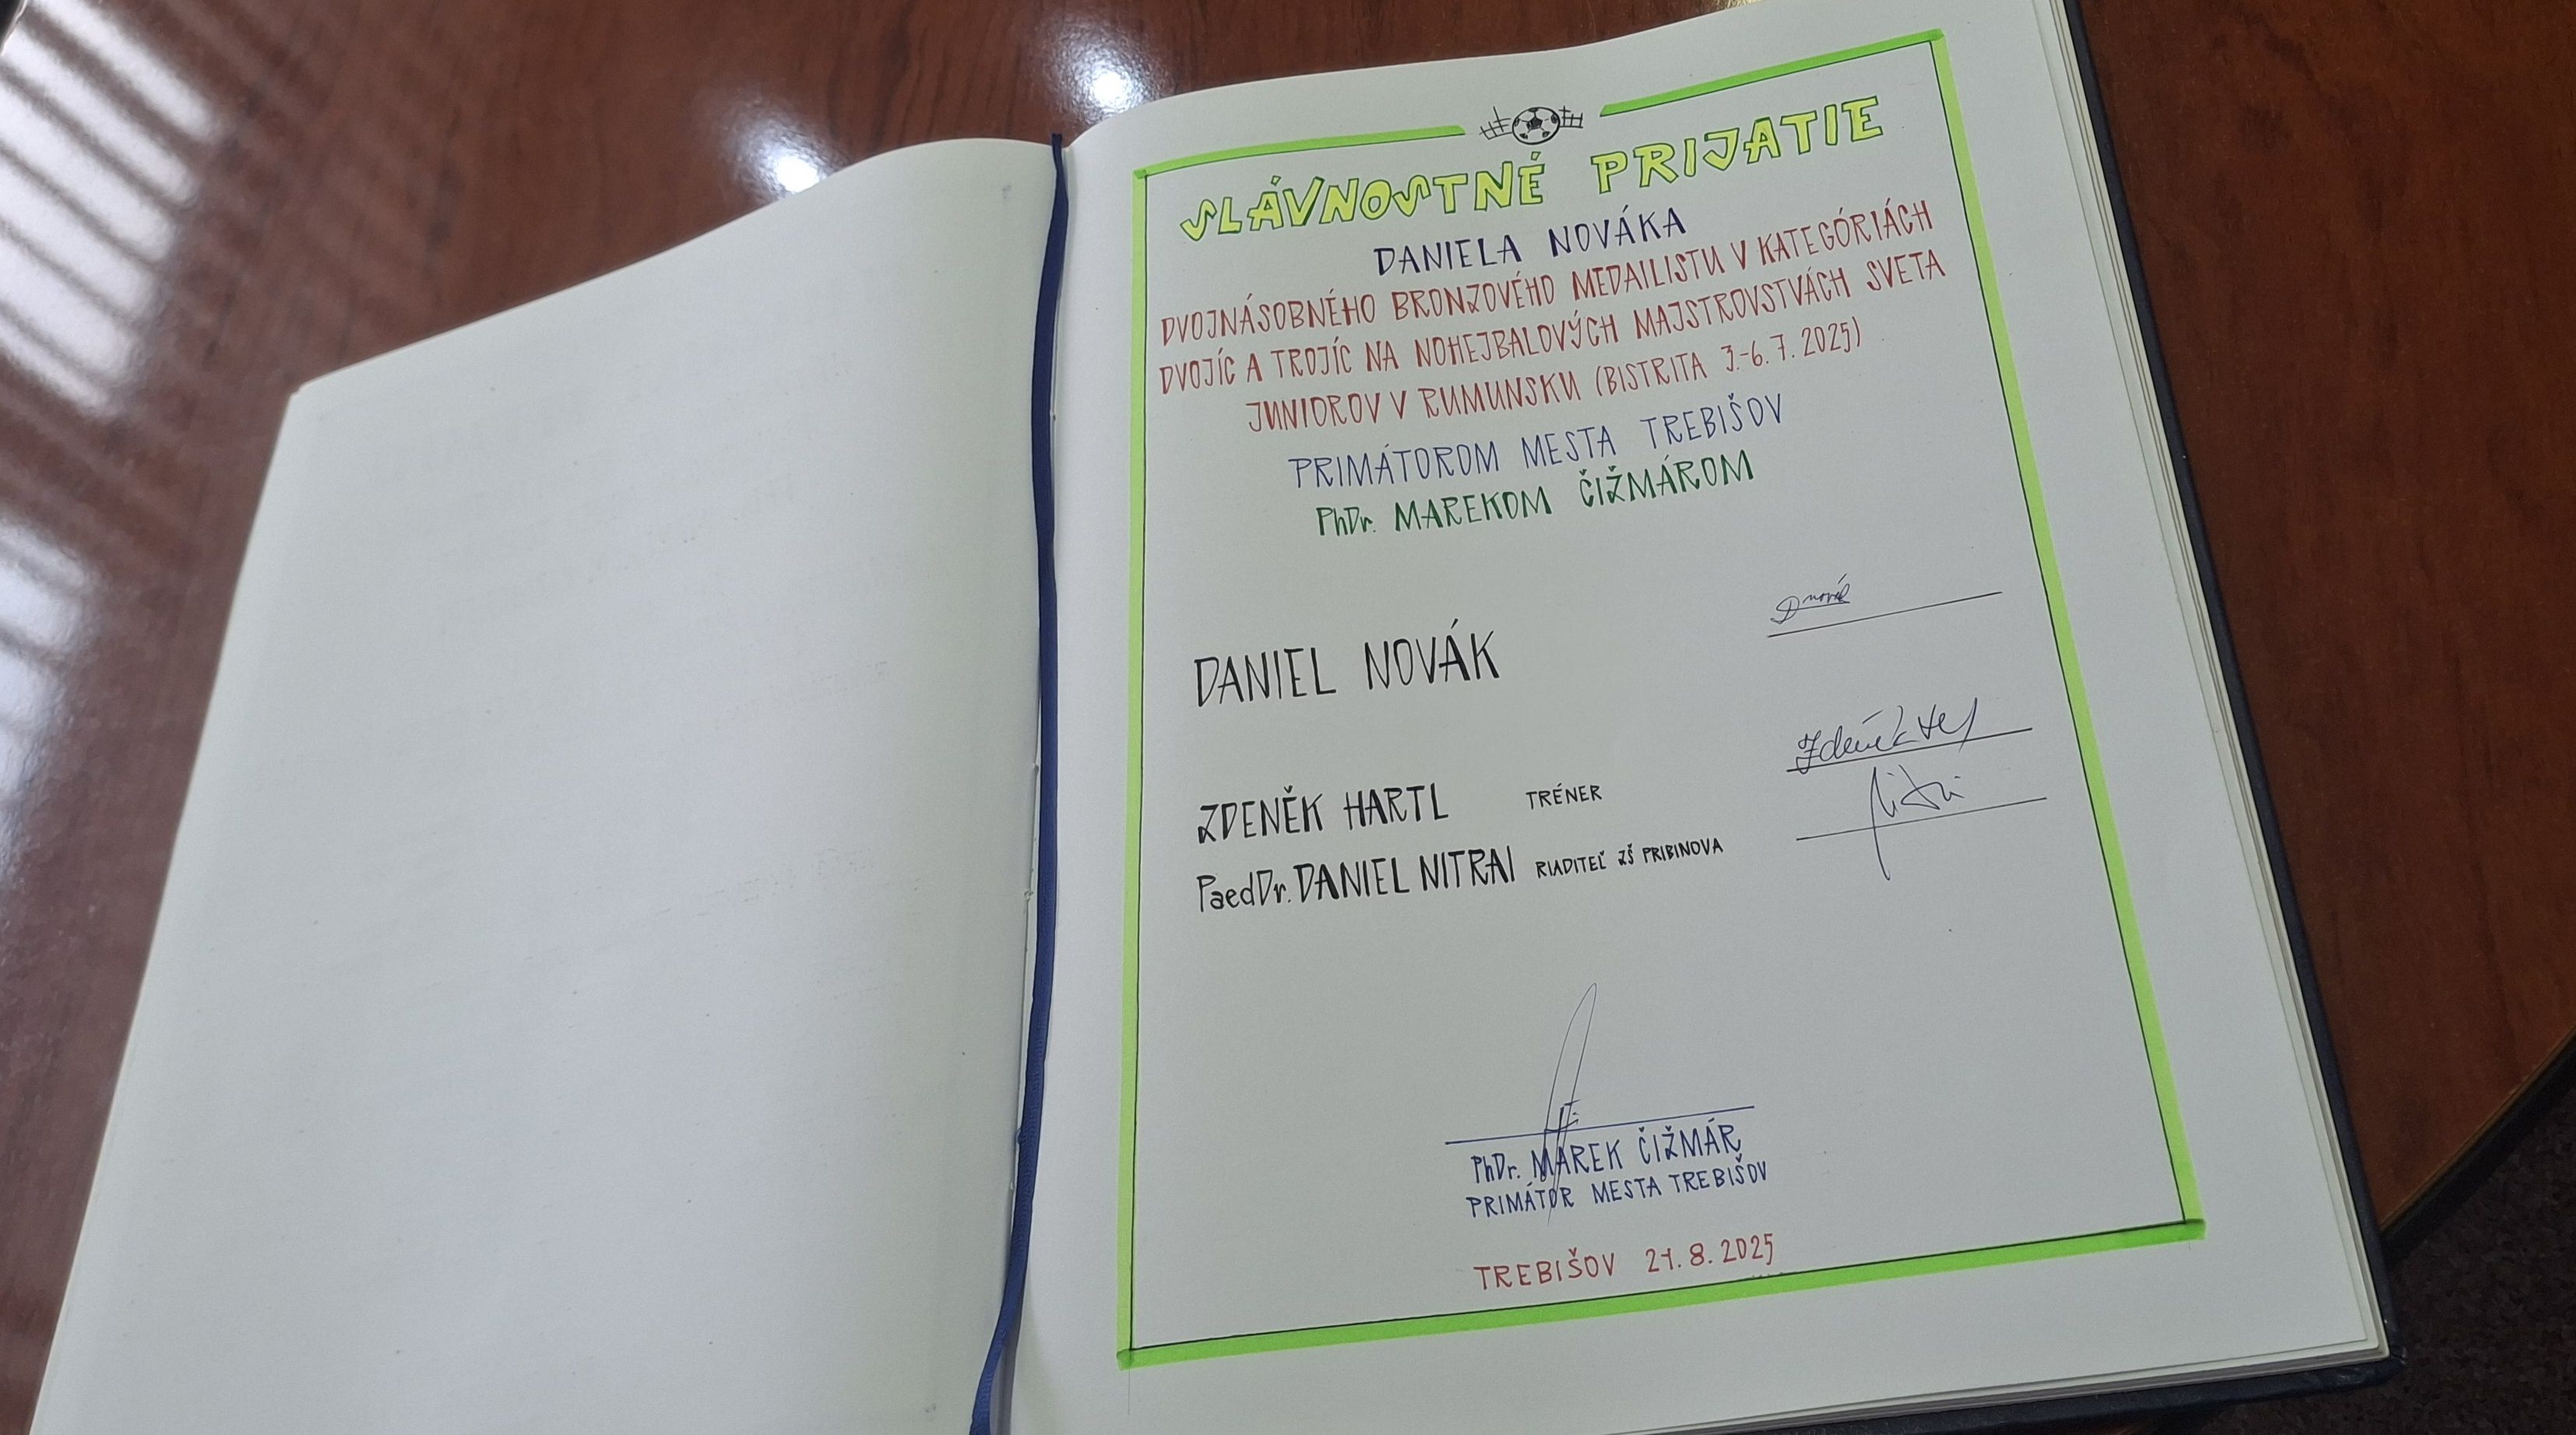 SLÁVNOSTNÉ PRIJATIE
DANIELA NOVÁKA
DVOJNÁSOBNÉHO BRONZOVÉHO MEDAILISTU V KATEGÓRIÁCH
DVOJÍC A TROJÍC NA NOHEJBALOVÝCH MAJSTROVSTVÁCH SVETA
JUNIOROV V RUMUNSKU (BISTRITA 3.-6.7.2025)
PRIMÁTOROM MESTA TREBIŠOV
PhDr. MAREKOM ČIŽMÁROM
DANIEL NOVÁK
ZDENĚK HARTL TRÉNER Zdeněk
PaedDr. DANIEL NITRAI RIADITEĽ ZŠ PRIBINOVA
PhDr. MAREK ČIŽMÁR
PRIMÁTOR MESTA TREBIŠOV
TREBIŠOV 21.8.2025